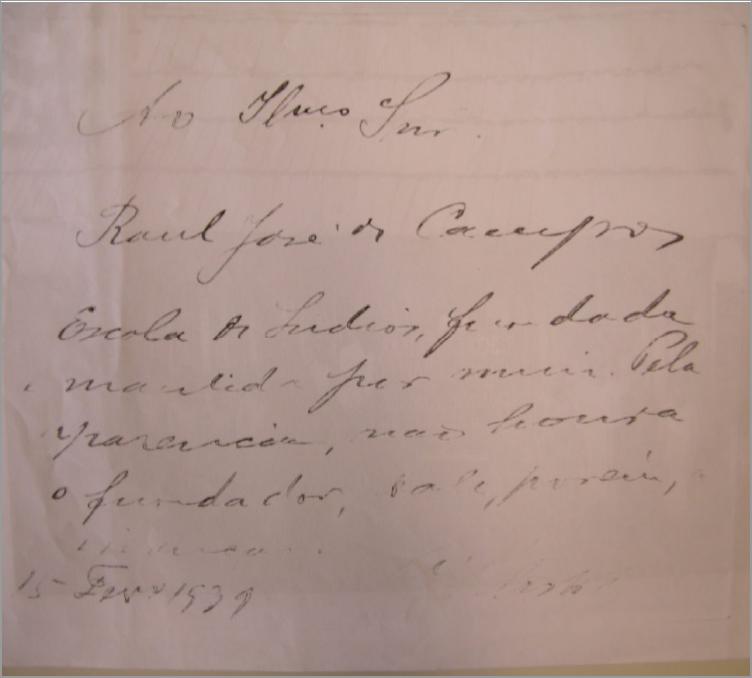 Ao Illmo Snr.
Raul José de Campos
Escola de Indios, fundada
e mantida por mim. Pela
apparencia, não honra
o fundador, vale, porém, a
15 Fevro 1939